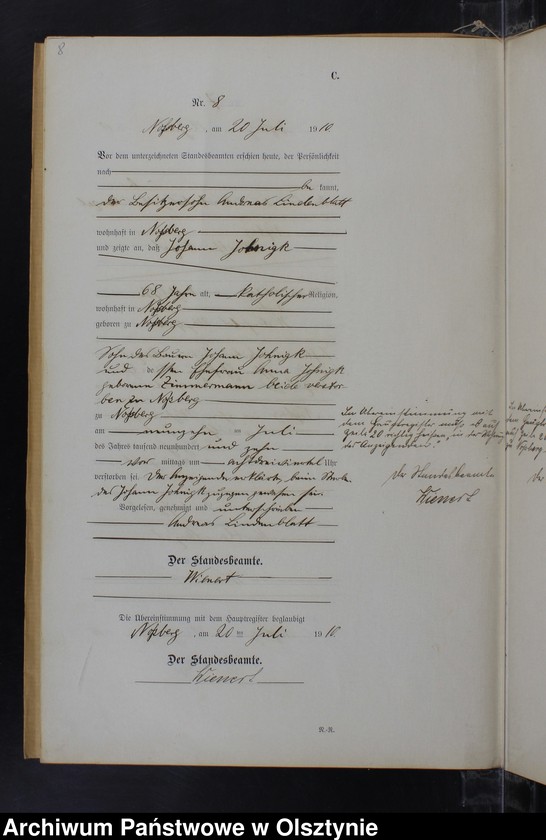 8
C.
Nr. 8
Noßberg, am 20 Juli 1910.
Vor dem unterzeichneten Standesbeamten erschien heute, der Persönlichkeit
nach
be kannt,
der Besitzersohn Andreas Lindenblatt
wohnhaft in Noßberg
und zeigte an, daß Johann Johnigk
68 Jahre alt, katholischer Religion,
wohnhaft in Noßberg
geboren zu Noßberg
Sohn des Bauern Johann Johnigk
und dessen Ehefrau Anna Johnigk
geborenen Zimmermann beide verstor-
ben in Noßberg
zu Noßberg
am neunzehn ten Juli
des Jahres tausend neunhundert und zehn
Vor mittags um achtdreiviertel Uhr
verstorben sei. Der Anzeigende erklärte, beim Sterben
des Johann Johnigk zugegen gewesen sei.
Vorgelesen, genehmigt und unterschrieben
Andreas Lindenblatt
Der Standesbeamte.
Wienert
Die Übereinstimmung mit dem Hauptregister beglaubigt
Noßberg, am 20 ten Juli 1910.
Der Standesbeamte.
Wienert
N.-R.
In Übereinstimmung mit
dem Hauptregister muß es auf
Zeile 20 richtig heißen, in der Wohnung
des Anzeigenden."
Der Standesbeamte
Wienert
Archiwum Państwowe w Olsztynie